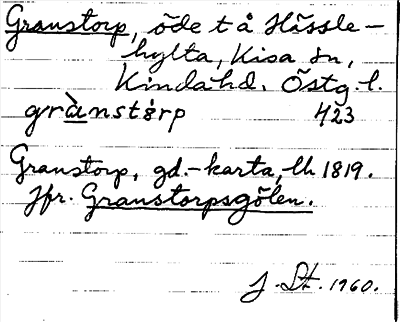 Granstorp, öde t å Hässle-
hylta, Kisa sn,
Kinda hd. Östg. l.
grànstårp 423
Granstorp, gd.-karta, lh 1819.
Jfr. Granstorpsgölen.
J. St. 1960.